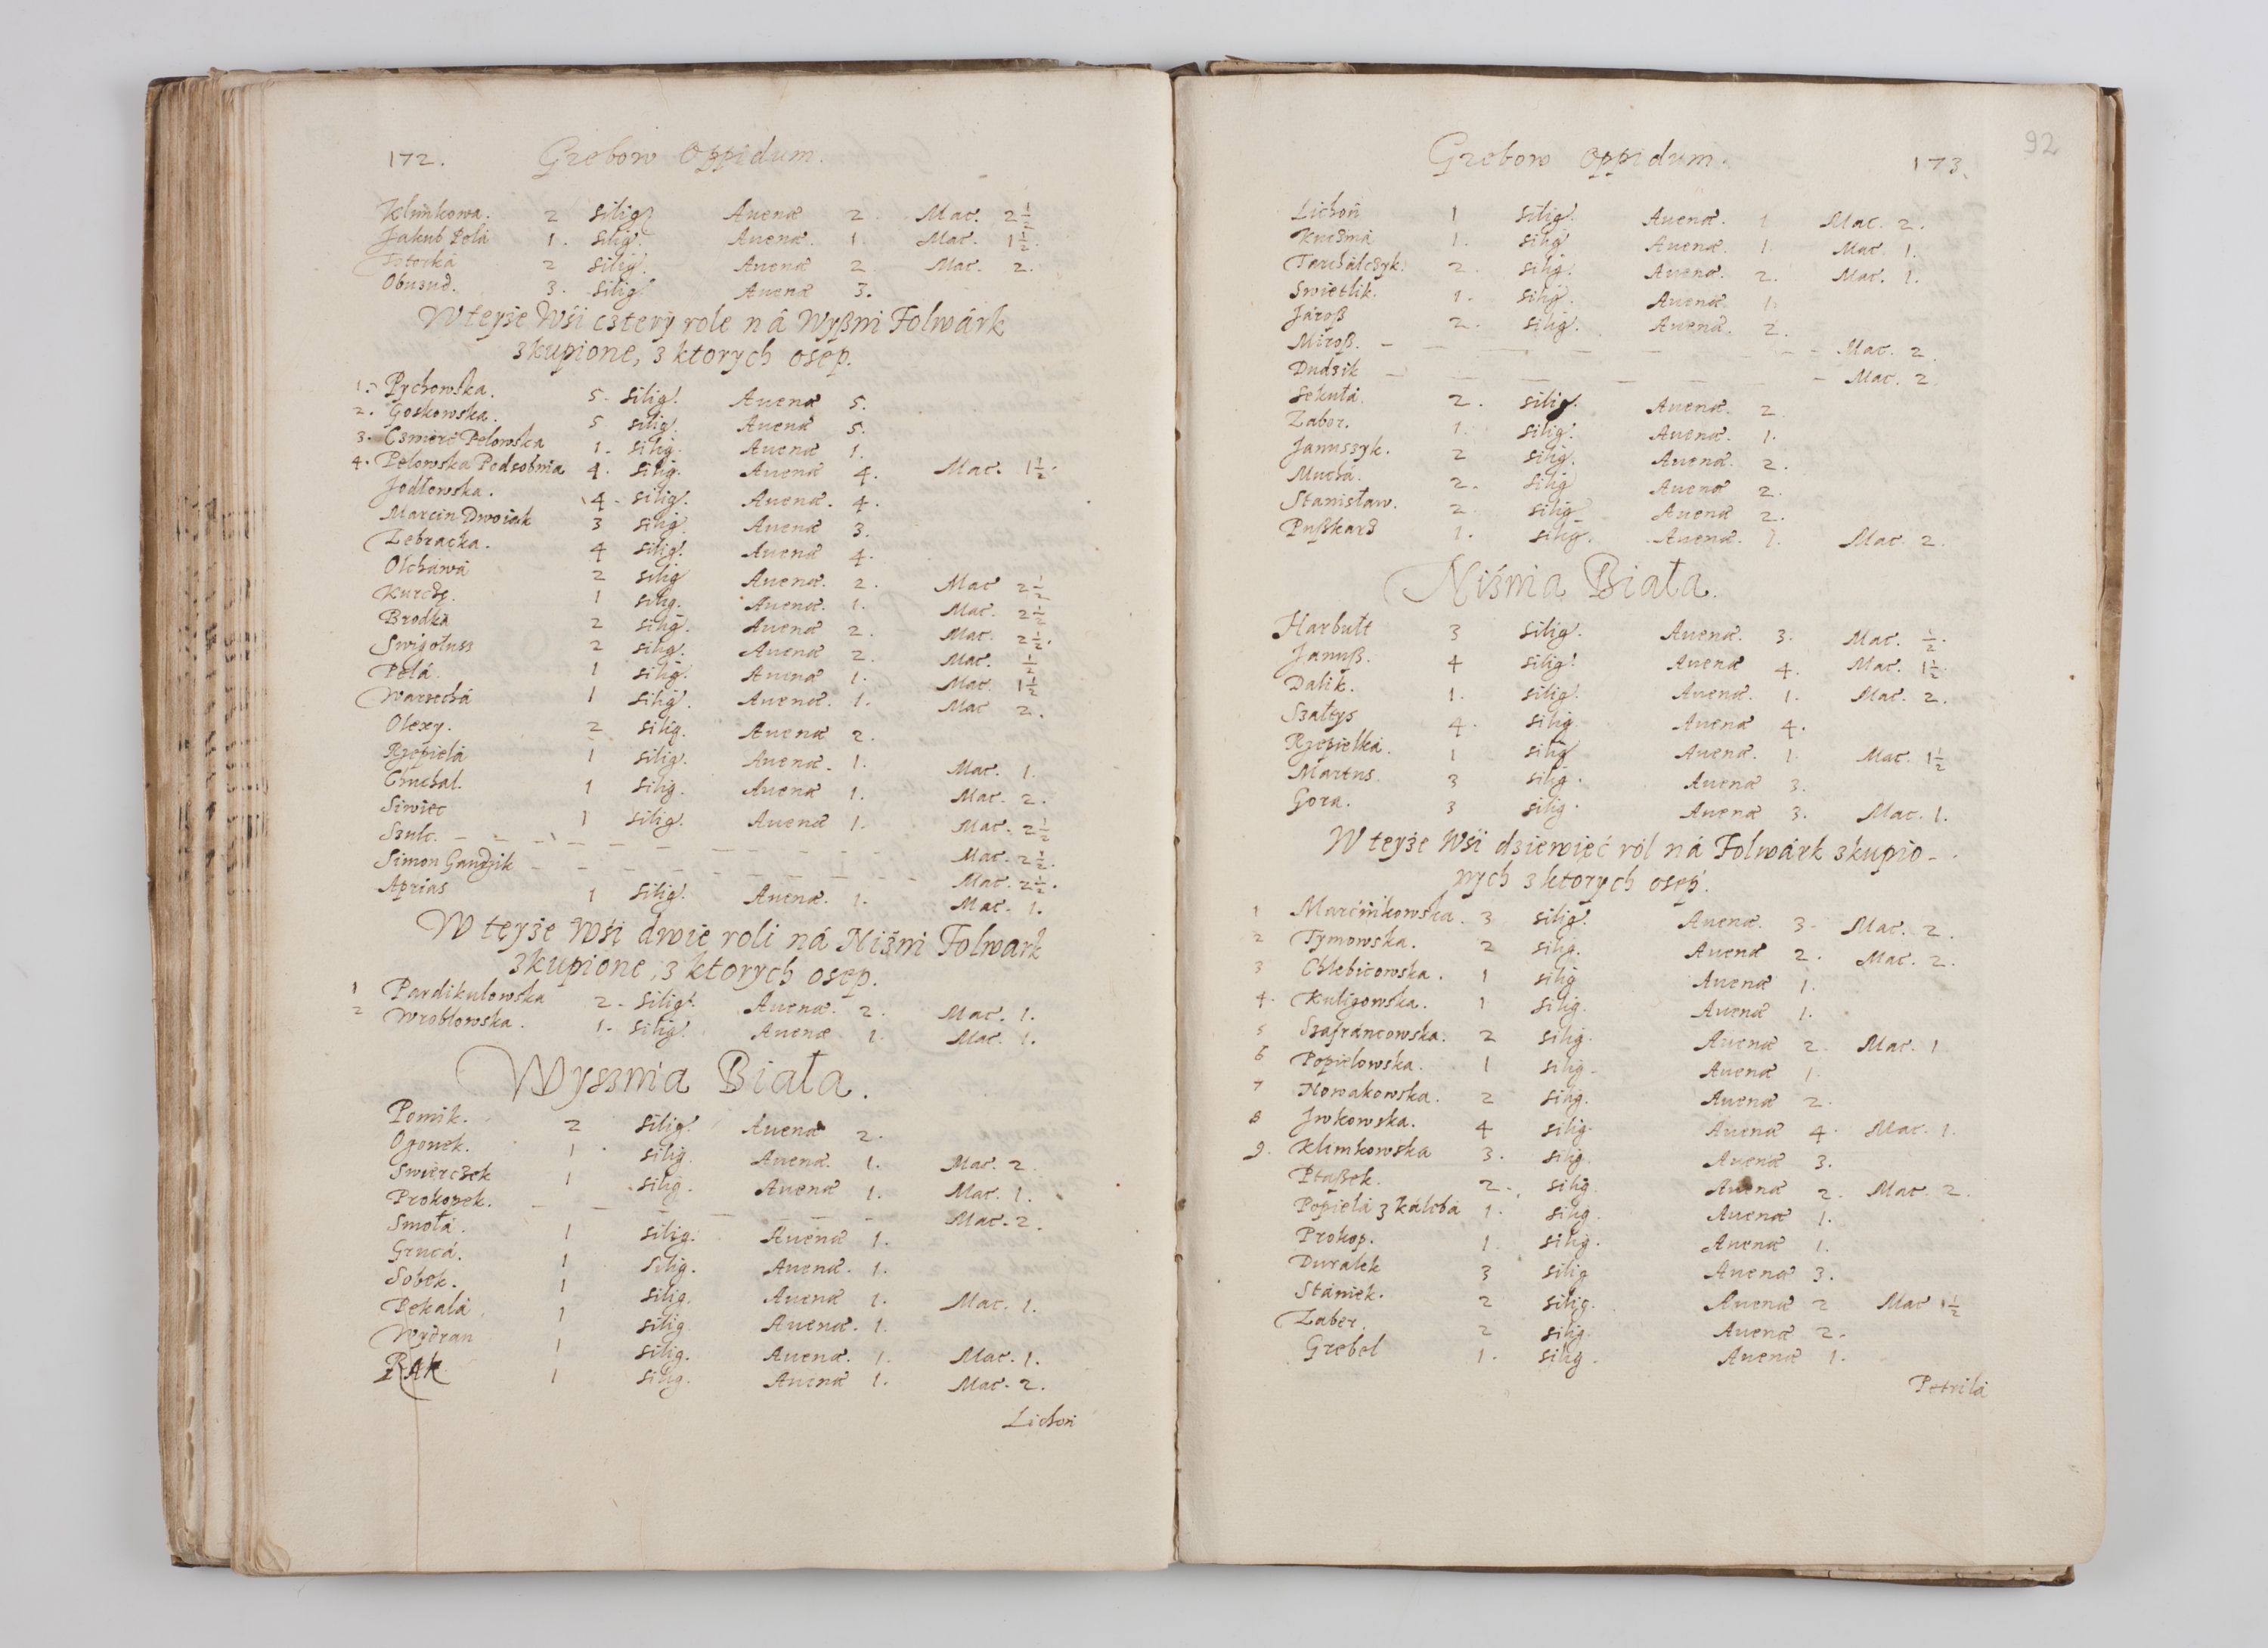 172. Grebow Oppidum.
Klimkowa. 2 Silig. Auenæ 2. Mac. 2 1/2
Jakub Pelá 1. Silig. Auenæ. 1. Mac. 1 1/2.
2 Silig. Auenæ 2. Mac. 2.
3. Silig. Auenæ 3.
W teyże Wśi cztery role ná Wyßni Folwárk
zkupione, z ktorych osep.
1. Pychowska. 5. Silig. Auenæ 5.
2. Goskowska. 5 Silig. Auenæ 5.
3. Czwierc Pelowska 1. Silig. Auenæ 1.
4. Pelowska Podsobnia 4. Silig. Auenæ 4. Mac. 1 1/2.
Jodłowska. 4. Silig. Auenæ. 4.
Marcin Dwoiak 3 Silig. Auenæ 3.
Zebracka. 4 Silig. Auenæ 4.
Olchawá 2 Silig Auenæ. 2. Mac 2 1/2
1 Silig. Auenæ. 1. Mac. 2 1/2
Brodka 2 Silig. Auenæ 2. Mac. 2 1/2.
2 Silig. Auenæ 2. Mac. 1/2
Pelá. 1 Silig. Auenæ 1. Mac. 1 1/2
Warzechá 1 Silig. Auenæ. 1. Mac 2.
Olexy. 2 Silig. Auenæ 2.
Rzepielá 1 Silig. Auenæ. 1. Mac. 1.
Gruchal. 1 Silig. Auenæ 1. Mac. 2.
Siwiec 1 Silig. Auenæ 1. Mac. 2 1/2
Szulc. – – – – – – – Mac. 2 1/2.
Simon Gandzik – – – – – – – Mac. 2 1/2.
Aprias 1 Silig. Auenæ. 1. Mac. 1.
W teyże Wśi dwie roli ná Niżni Folwark
zkupione, z ktorych osep.
1 Pardikulowska 2. Silig. Auenæ. 2. Mac. 1.
2 Wroblowska. 1. Silig. Auenæ 1. Mac. 1.
Wysznia Biała.
Pomik. 2 Silig. Auenæ 2.
Ogonek. 1. Silig. Auenæ. 1. Mac. 2.
Swierczek 1 Silig. Auenæ 1. Mac. 1.
Prokopek. – – – – – – – Mac. 2.
Smołá. 1 Silig. Auenæ 1.
Grucá. 1 Silig. Auenæ. 1.
Sobek. 1 Silig. Auenæ 1. Mac. 1.
Pekalá. 1 Silig. Auenæ. 1.
Wydran 1 Silig. Auenæ. 1. Mac. 1.
Rak 1 Silig. Auenæ 1. Mac. 2.
Lichoń
92
Grebow Oppidum. 173.
Lichoń 1 Silig. Auenæ. 1 Mac. 2.
Kuczmá 1. Silig Auenæ. 1. Mac. 1.
Tauchalczyk. 2. Silig. Auenæ. 2. Mac. 1.
Swietlik. 1. Silig. Auenæ 1.
Jároß 2. Silig. Auenæ. 2.
Miroß. – – – – – – – Mac. 2.
Dudzik – – – – – – – Mac. 2.
Sekułá. 2. Silig. Auenæ. 2.
Zabor. 1. Silig. Auenæ. 1.
Januszyk. 2 Silig. Auenæ. 2.
Muchá. 2. Silig Auenæ 2.
Stanisław. 2. Silig Auenæ 2.
Pußkarz 1. Silig. Auenæ. 1. Mac. 2.
Niźnia Biała.
Harbułt 3 Silig. Auenæ. 3. Mac. 1/2.
Januß. 4 Silig. Auenæ 4. Mac. 1 1/2.
Dalik. 1. Silig. Auenæ. 1. Mac. 2.
Szałtys 4. Silig. Auenæ 4.
Rzepielká. 1 Silig Auenæ. 1. Mac. 1 1/2
Martus. 3 Silig. Auenæ 3.
Gora. 3 Silig. Auenæ 3. Mac. 1.
W teyże Wśi dziewięć ról ná Folwárk zkupio-
nych z ktorych osep.
1 Marcinkowska. 3 Silig. Auenæ. 3. Mac. 2.
2 Tymowska. 2 Silig. Auenæ 2. Mac. 2.
3 Chlebicowska. 1 Silig Auenæ 1.
4. Kuligowska. 1 Silig. Auenæ 1.
5 Szafrancowska. 2 Silig. Auenæ 2. Mac. 1
6 Popielowska. 1 Silig. Auenæ 1.
7 Nowakowska. 2 Silig. Auenæ 2.
8 Jwkowska. 4 Silig. Auenæ 4. Mac. 1.
9. Klimkowska 3. Silig. Auenæ 3.
Ptaßek. 2. Silig. Auenæ 2. Mac. 2.
Popielá z 1. Silig. Auenæ 1.
Prokop. 1. Silig. Auenæ 1.
Duralek 3 Silig Auenæ 3.
Stániek. 2 Silig. Auenæ 2 Mac 1 1/2
Zaber. 2 Silig. Auenæ 2.
Grebel 1. Silig. Auenæ 1.
Petrilá